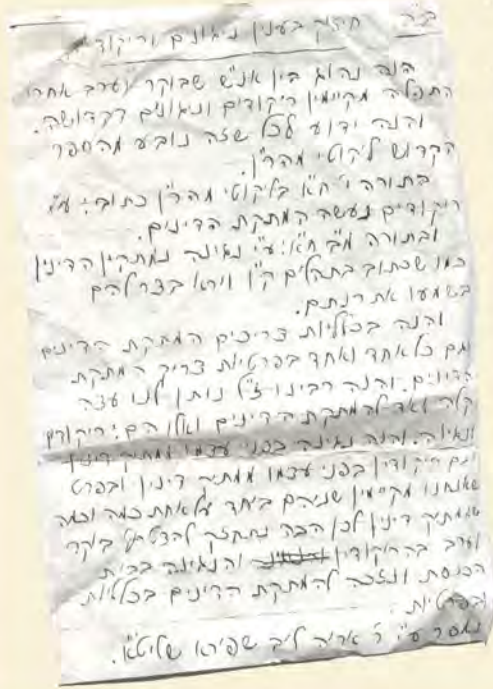 ב"ה
חיזוק בענין ניגונים וריקודים
הנה נהוג בין אנ"ש שבוקר וערב אחרי
התפלה מקיימין ריקודים ונגונים דקדושה.
והנה ידוע לכל שזה נובע מהספר
הקדוש ליקוטי מהר"ן.
בתורה י' ח"א בליקוטי מהר"ן כתוב: ע"י
ריקודים נעשה המתקת הדינים.
ובתורה מ"ב ח"א: ע"י נגינה נמתקין הדינין
כמו שכתוב בתהלים ק"ו וירא בצר להם
בשמעו את רנתם.
והנה בכלליות צריכים המתקת הדינים
וגם כל אחד ואחד בפרטיות צריך המתקת
הדינים. והנה רבינו ז"ל נותן לנו עצה
קלה מאד להמתקת הדינים ואלו הם: ריקודים
ונגינה. והנה נגינה בפני עצמו ממתיק דינין
וגם ריקודין בפני עצמו ממתיק דינין ובפרט
שאנחנו מקיימין שניהם ביחד על אחת כמה וכמה
שממתיק דינין לכן הבה נתחזק להשתתף בוקר
וערב בהריקודין והנגינה בבית
הכנסת ונזכה להמתקת הדינים בכלליות
ובפרטיות.
נמסר ע"י ר' אריה ליב שפירא שליט"א.